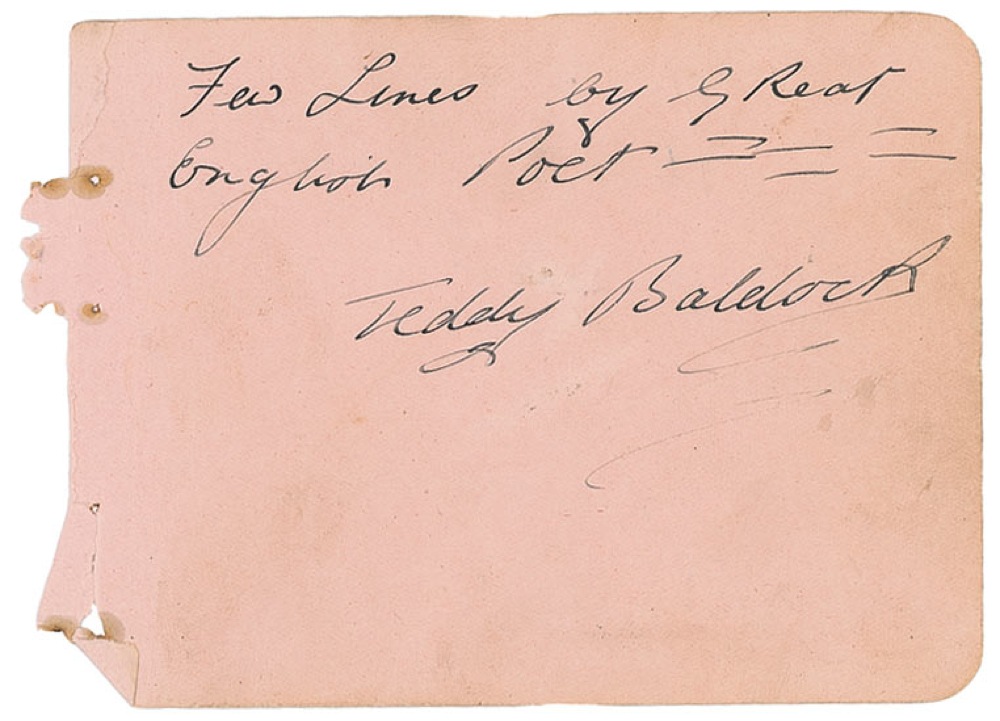 Few Lines by GReat
English Poet
Teddy Baldock